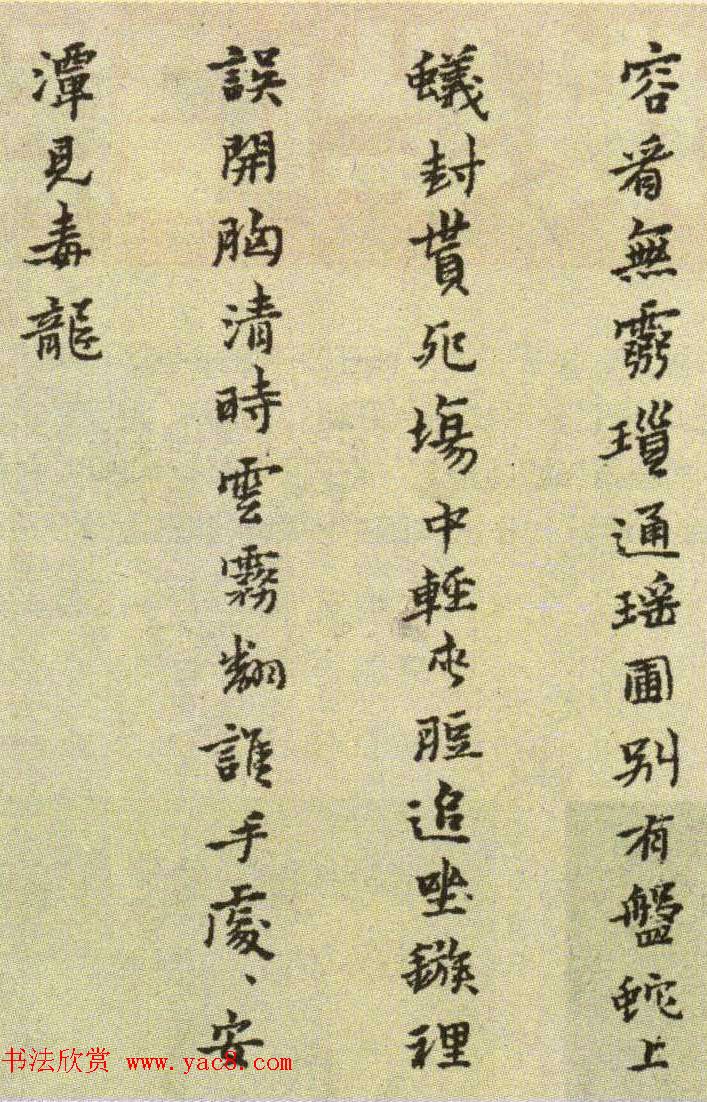 容看無瑣通瑶圃別有盤蛇上
蟻封貰死塲中輕脰追鏃理
誤開胸清時雲霧翻誰手處、安
潭見毒龍
书法欣赏 www.yac8.com